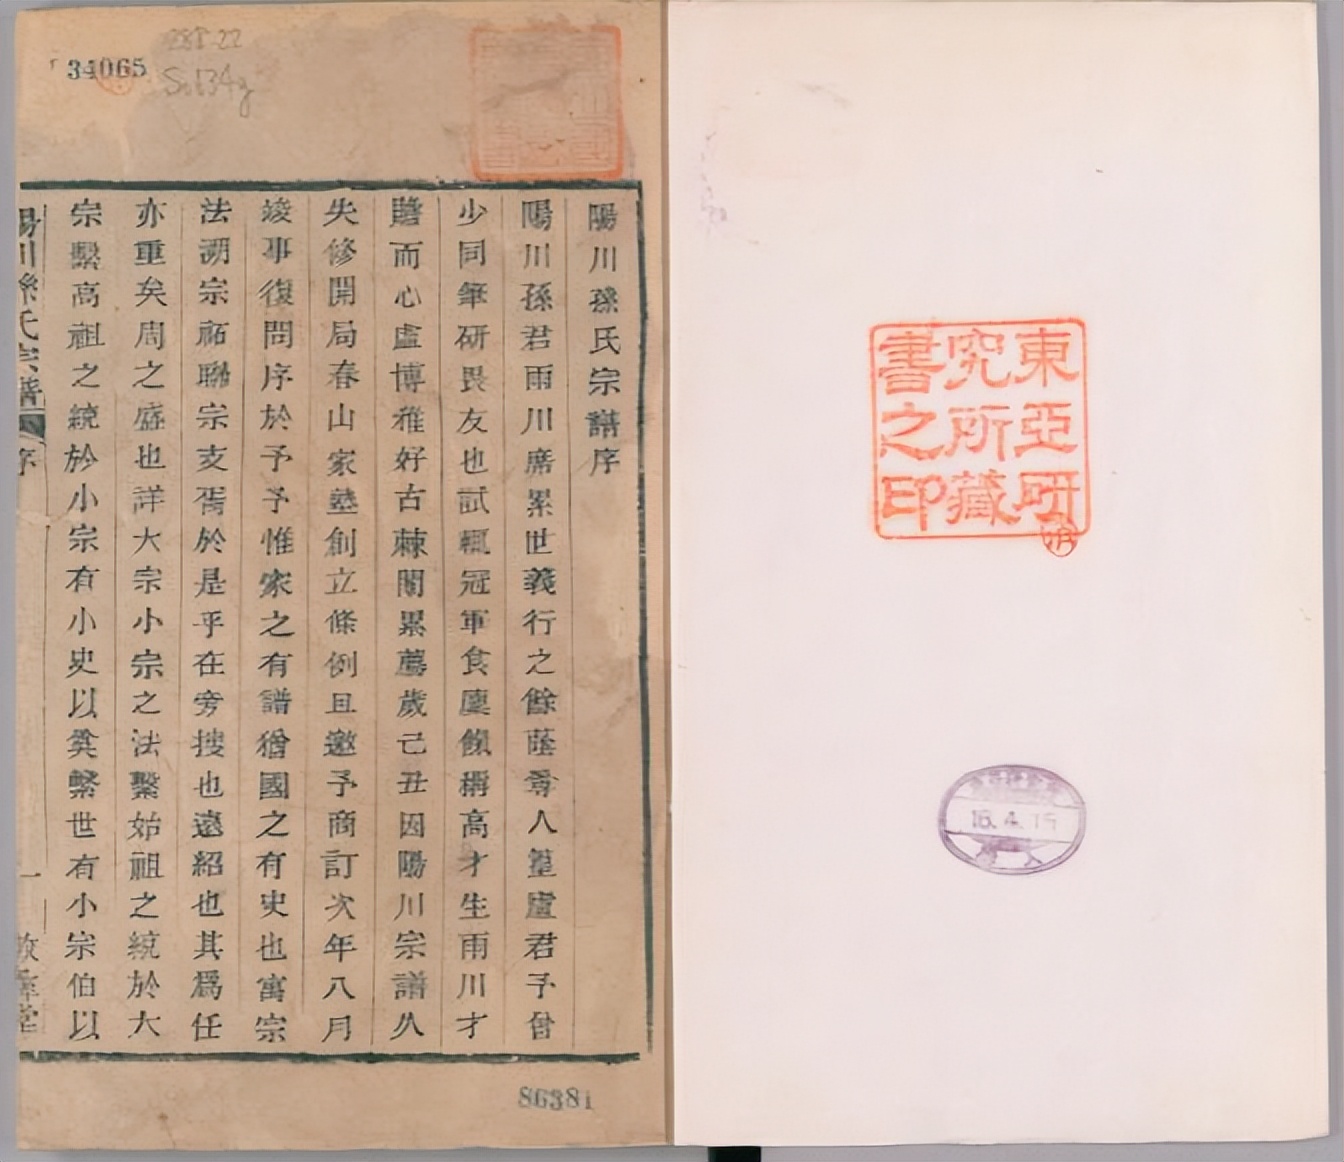 東亞研
究所藏
書之印
16.4.15
34065
陽川孫氏宗譜序
陽川孫君雨川席累世義行之餘蔭尊人篁廬君予曾
少同筆研畏友也試輒冠軍食廩餼稱高才生雨川才
贍而心虛博雅好古棘闈累薦歲己丑因陽川宗譜久
失修開局春山家塾創立條例且邀予商訂次年八月
竣事復問序於予予惟家之有譜猶國之有史也寓宗
法溯宗祏聯宗支胥於是乎在旁搜也遠紹也其爲任
亦重矣周之盛也詳大宗小宗之法繫始祖之統於大
宗繫高祖之統於小宗有小史以奠繫世有小宗伯以
陽川孫氏宗譜 序 一
86381